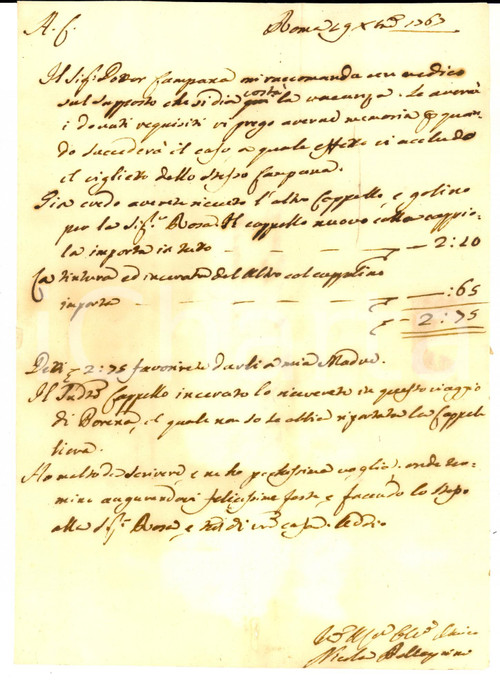 A. C.
Roma 19 Xbre 1763
Il Sigr Dottor Campana mi raccomanda un medico
sul supposto che si dia costà la vacanza. Se averà
i dovuti requisiti vi prego averne memoria quan-
do succederà il caso a quale effetto vi accludo
il viglietto dello stesso Campana.
Già credo averete ricevuto l'altro Cappello, e golino
per la Sigra Rosa. Il cappello nuovo colla cappio-
la importa in tutto — 2:10
La tintura ed incerata del altro col cappolino
importa — :65
— 2:75
Detti 2:75 favorirete darli a mia Madre.
Il Cappello incerato lo riceverete in questo viaggio
di Borena, il quale non so se abbia riportata la Cappel-
liera.
Ho molto da scrivere, e ne ho pochissima voglia, onde ter-
mino augurandovi felicissime feste, e facendo lo stesso
alla Sigra Rosa, e tutti di vra casa. Addio
Nicola Pellegrini